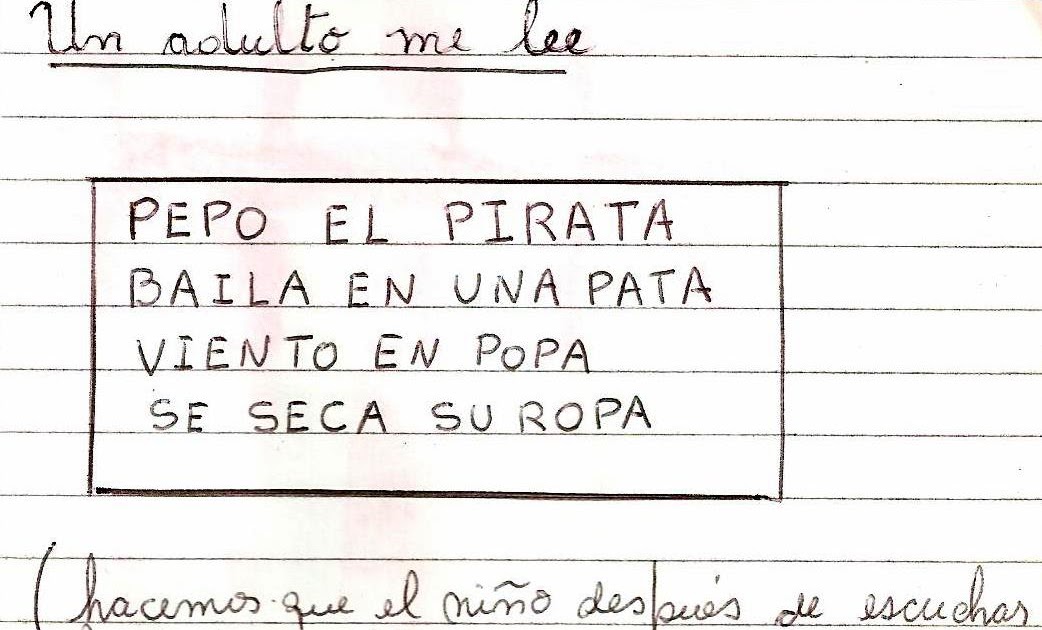 Un adulto me lee
PEPO EL PIRATA
BAILA EN UNA PATA
VIENTO EN POPA
SE SECA SU ROPA
(hacemos que el niño después de escuchar